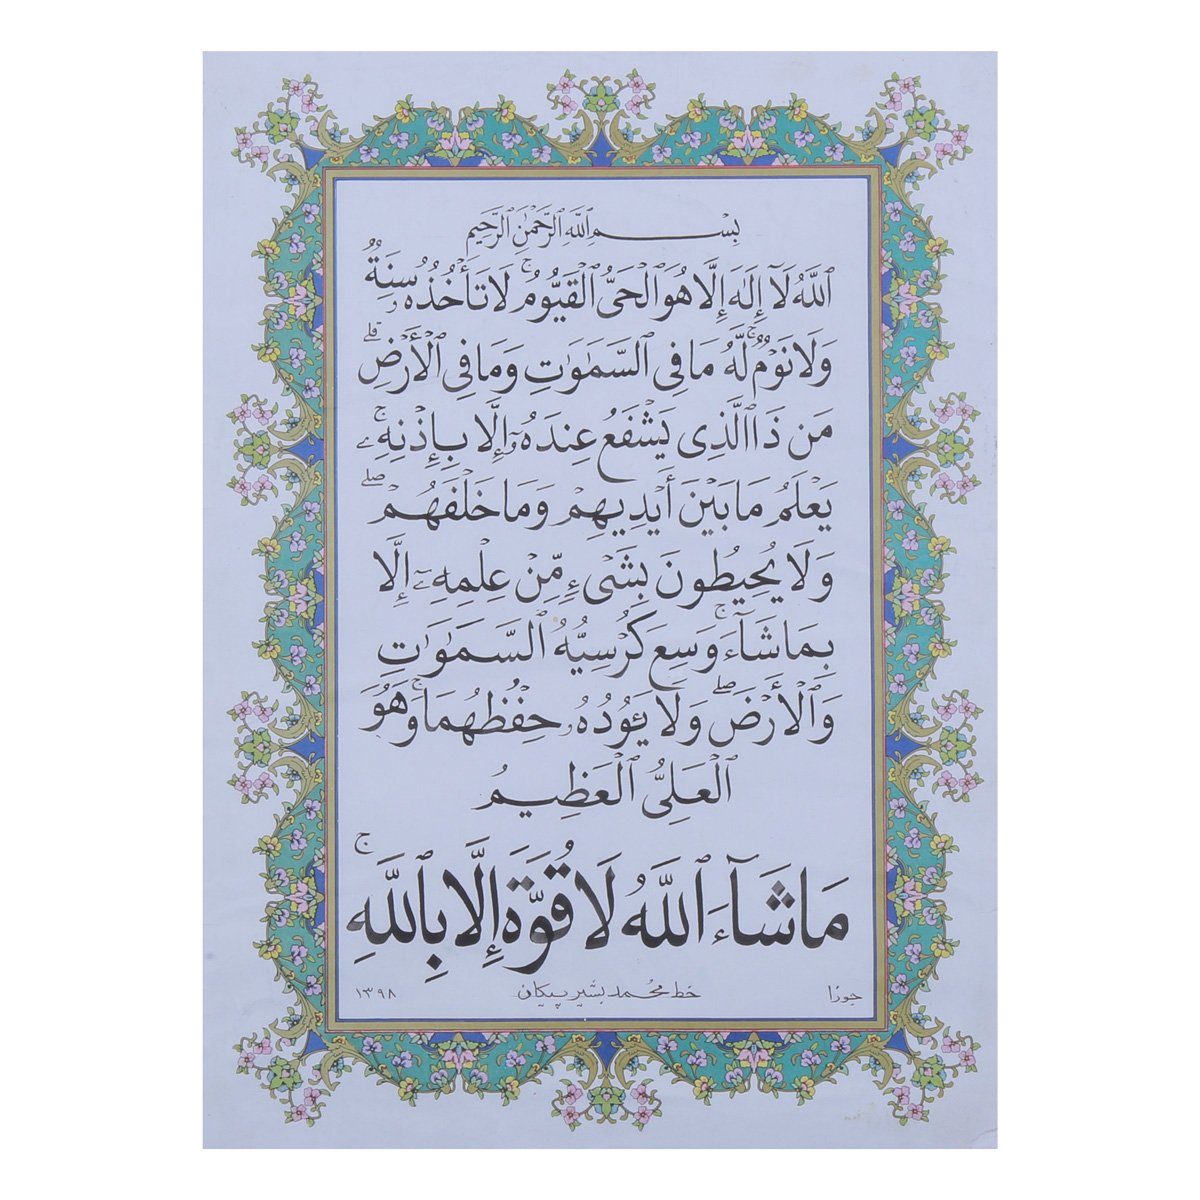 بِسْمِ اللَّهِ الرَّحْمَٰنِ الرَّحِيمِ
اللَّهُ لَآ إِلَٰهَ إِلَّا هُوَ الْحَىُّ الْقَيُّومُ ۚ لَا تَأْخُذُهُۥ سِنَةٌ
وَلَا نَوْمٌ ۚ لَّهُۥ مَا فِى السَّمَٰوَٰتِ وَمَا فِى الْأَرْضِ ۗ
مَن ذَا الَّذِى يَشْفَعُ عِندَهُۥٓ إِلَّا بِإِذْنِهِۦ ۚ
يَعْلَمُ مَا بَيْنَ أَيْدِيهِمْ وَمَا خَلْفَهُمْ ۖ
وَلَا يُحِيطُونَ بِشَىْءٍ مِّنْ عِلْمِهِۦٓ إِلَّا
بِمَا شَآءَ ۚ وَسِعَ كُرْسِيُّهُ السَّمَٰوَٰتِ
وَالْأَرْضَ ۖ وَلَا يَـُٔودُهُۥ حِفْظُهُمَا ۚ وَهُوَ
الْعَلِىُّ الْعَظِيمُ
مَا شَآءَ اللَّهُ لَا قُوَّةَ إِلَّا بِاللَّهِ ۚ
جوزا خط محمد بشیر پیکان ۱۳۹۸